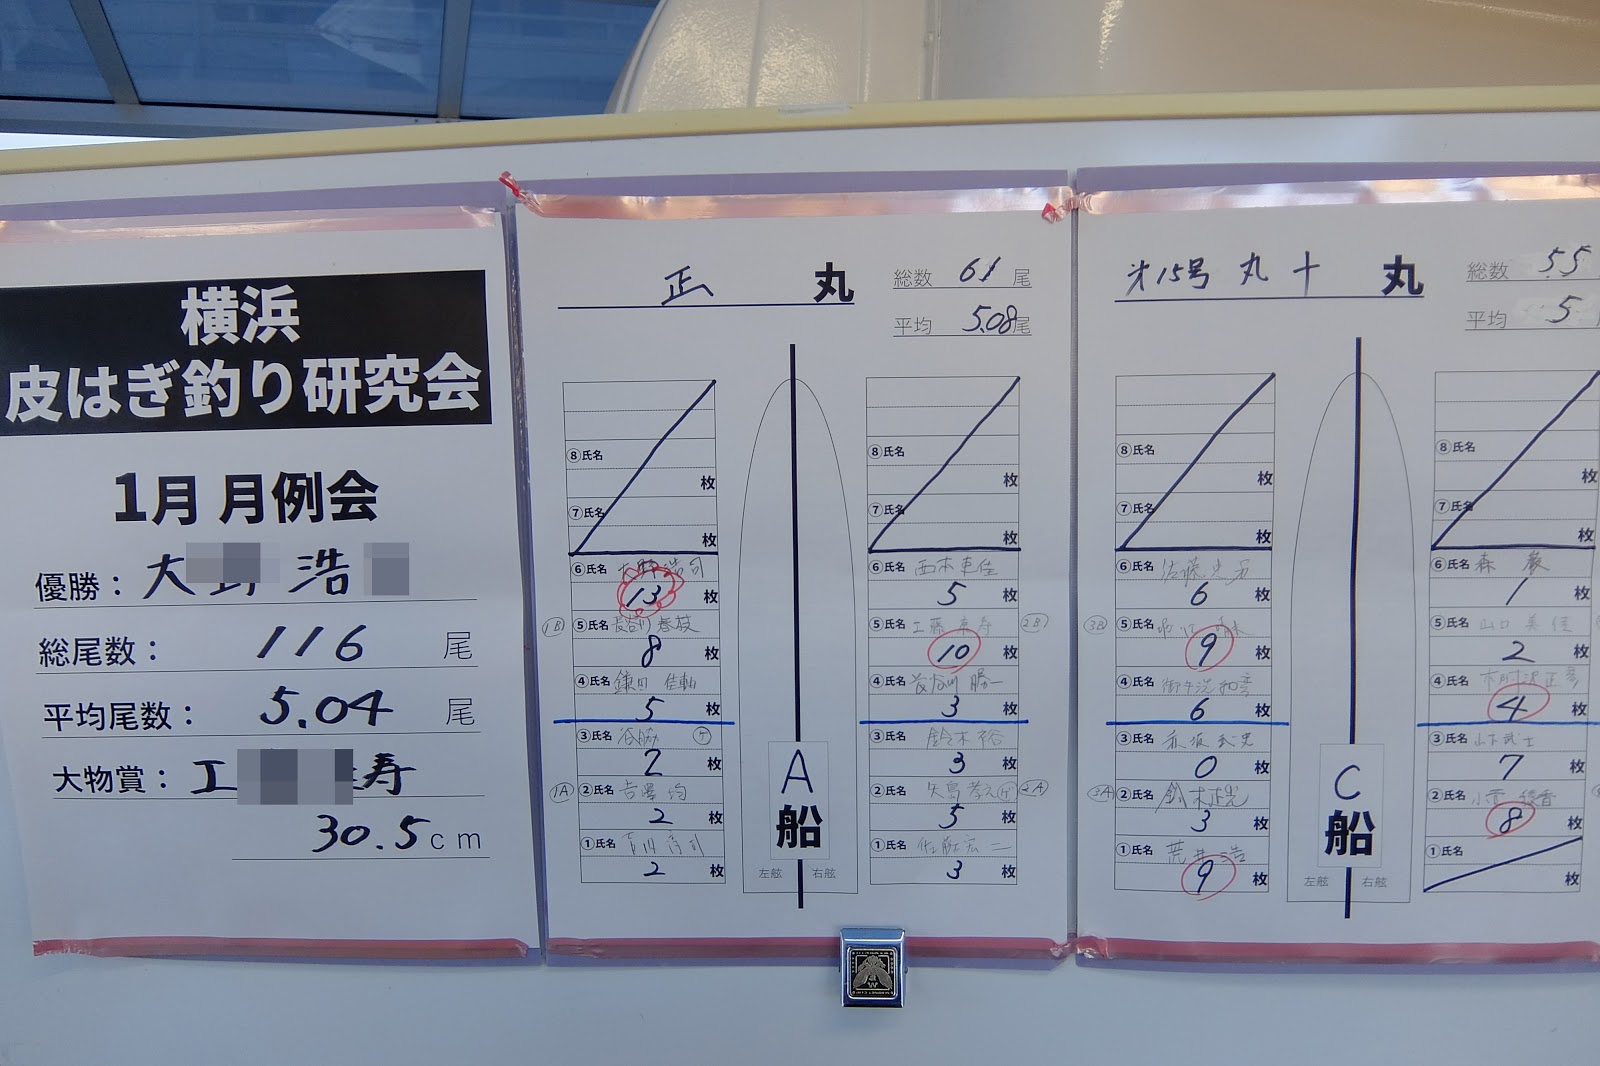 横浜
皮はぎ釣り研究会
1月 月例会
優勝: 大 浩
総尾数: 116 尾
平均尾数: 5.04 尾
大物賞: 工 寿
30.5cm
正 丸
総数 61 尾
平均 5.08尾
⑧氏名
枚
⑦氏名
枚
⑥氏名
13 枚
1B ⑤氏名 長谷川 春枝
8 枚
④氏名 鎌田 佳軸
5 枚
③氏名 谷脇
2 枚
1A ②氏名 吉澤 均
2 枚
①氏名
2 枚
A
船
左舷 右舷
⑧氏名
枚
⑦氏名
枚
⑥氏名 西本
5 枚
⑤氏名 工藤 寿 2B
10 枚
④氏名 長谷川 勝一
3 枚
③氏名 鈴木 裕
3 枚
②氏名 2A
5 枚
①氏名 佐藤宏二
3 枚
第15号 丸十 丸
総数 55
平均 5
⑧氏名
枚
⑦氏名
枚
⑥氏名 佐藤
6 枚
3B ⑤氏名
9 枚
④氏名 御手洗
6 枚
③氏名 赤坂 武史
0 枚
3A ②氏名 鈴木
3 枚
①氏名 荒井 浩
9 枚
C
船
左舷 右舷
⑧氏名
枚
⑦氏名
枚
⑥氏名 森 巌
1 枚
⑤氏名 山口 美佳
2 枚
④氏名
4 枚
③氏名 山下武士
7 枚
②氏名 小菅
8 枚
①氏名
枚